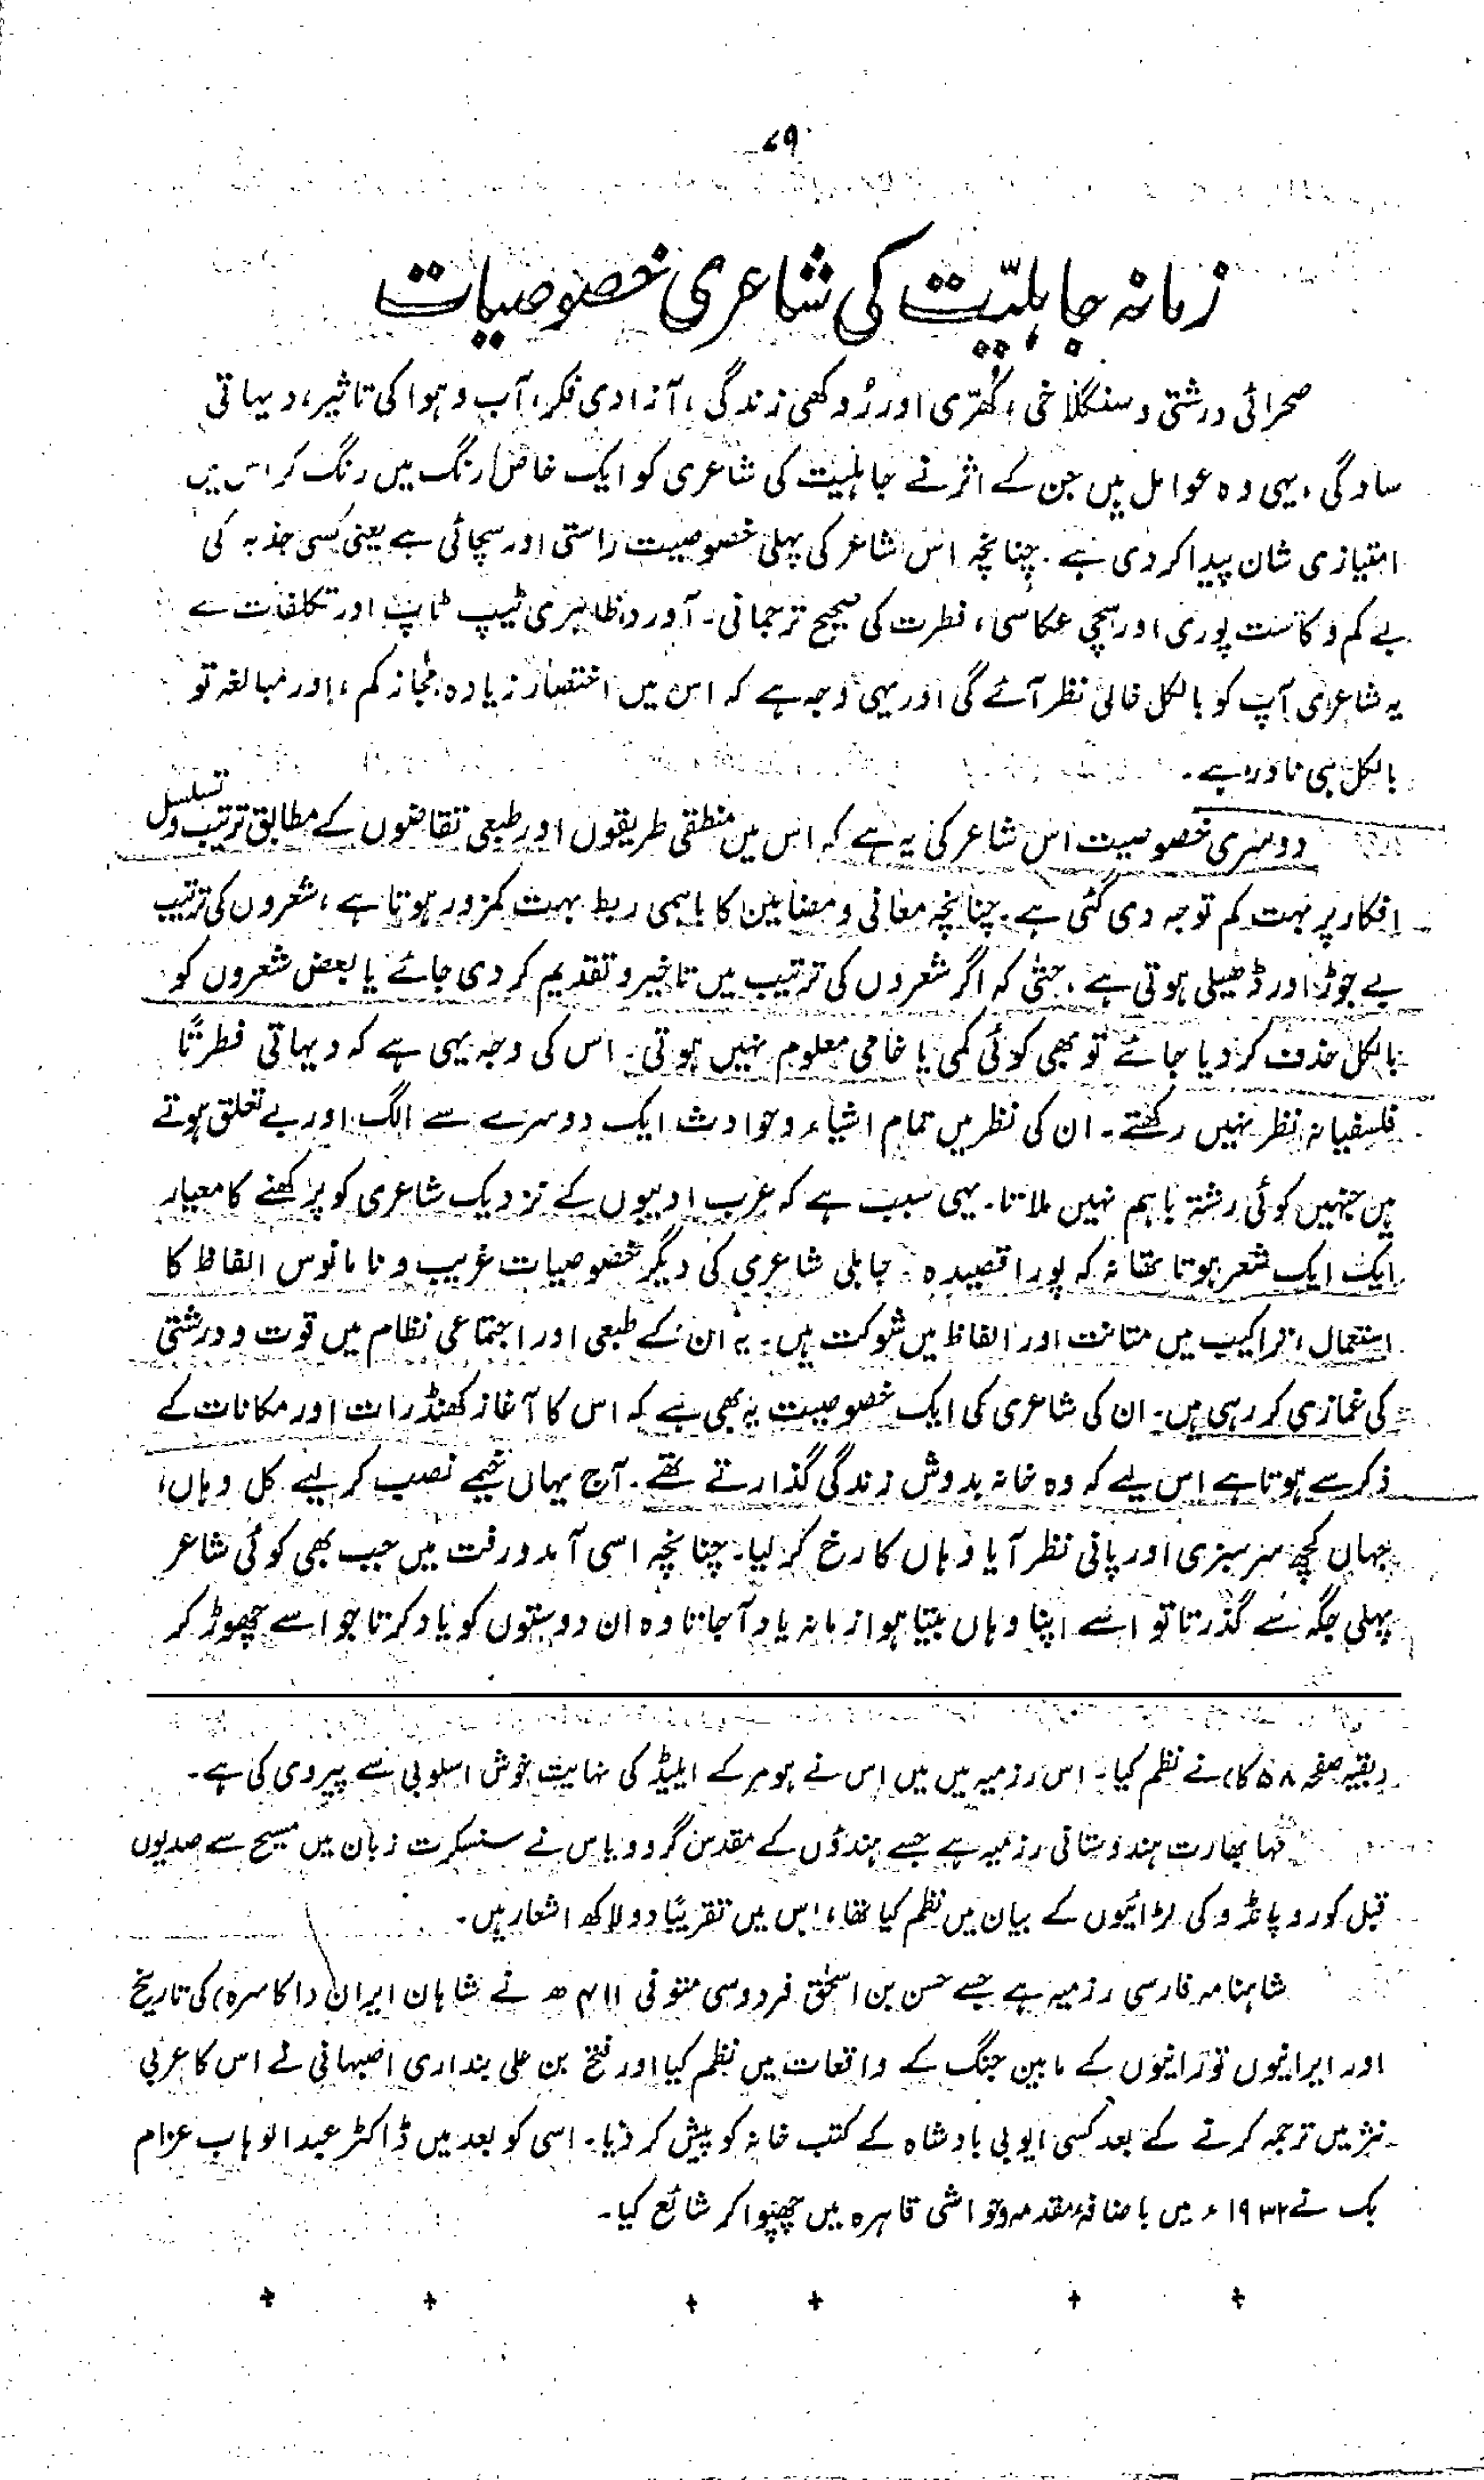 ۷۹
زمانہ جاہلیّت کی شاعری خصوصیات
صحرائی درشتی و سنگلاخی، کھرّی اور رُوکھی زندگی، آزادی فکر، آب و ہوا کی تاثیر، دیہاتی
سادگی، یہی وہ عوامل ہیں جن کے اثر نے جاہلیت کی شاعری کو ایک خاص رنگ میں رنگ کر اس میں
امتیازی شان پیدا کر دی ہے۔ چنانچہ اس شاعر کی پہلی خصوصیت راستی اور سچائی ہے یعنی کسی جذبہ کی
بے کم و کاست پوری اور سچی عکاسی، فطرت کی صحیح ترجمانی۔ آورد، ظاہری ٹیپ ٹاپ اور تکلفات سے
یہ شاعری آپ کو بالکل خالی نظر آئے گی اور یہی وجہ ہے کہ اس میں اختصار زیادہ، مجاز کم، اور مبالغہ تو
بالکل ہی نادر ہے۔
دوسری خصوصیت اس شاعر کی یہ ہے کہ اس میں منطقی طریقوں اور طبعی تقاضوں کے مطابق ترتیب و تسلسل
افکار پر بہت کم توجہ دی گئی ہے۔ چنانچہ معانی و مضامین کا باہمی ربط بہت کمزور ہوتا ہے، شعروں کی ترتیب
بے جوڑ اور ڈھیلی ہوتی ہے، حتیٰ کہ اگر شعروں کی ترتیب میں تاخیر و تقدیم کر دی جائے یا بعض شعروں کو
بالکل حذف کر دیا جائے تو بھی کوئی کمی یا خامی معلوم نہیں ہوتی۔ اس کی وجہ یہی ہے کہ دیہاتی فطرتًا
فلسفیانہ نظر نہیں رکھتے۔ ان کی نظر میں تمام اشیاء و حوادث ایک دوسرے سے الگ اور بے تعلق ہوتے
ہیں جنہیں کوئی رشتہ باہم نہیں ملاتا۔ یہی سبب ہے کہ عرب ادیبوں کے نزدیک شاعری کو پرکھنے کا معیار
ایک ایک شعر ہوتا تھا نہ کہ پورا قصیدہ۔ جاہلی شاعری کی دیگر خصوصیات غریب و نامانوس الفاظ کا
استعمال، تراکیب میں متانت اور الفاظ میں شوکت ہیں۔ یہ ان کے طبعی اور اجتماعی نظام میں قوت و درشتی
کی غمازی کر رہی ہیں۔ ان کی شاعری کی ایک خصوصیت یہ بھی ہے کہ اس کا آغاز کھنڈرات اور مکانات کے
ذکر سے ہوتا ہے اس لیے کہ وہ خانہ بدوش زندگی گذارتے تھے۔ آج یہاں خیمے نصب کر لیے کل وہاں،
جہاں کچھ سرسبزی اور پانی نظر آیا وہاں کا رخ کر لیا۔ چنانچہ اسی آمد و رفت میں جب بھی کوئی شاعر
پہلی جگہ سے گذرتا تو اسے اپنا وہاں بیتا ہوا زمانہ یاد آجاتا وہ ان دوستوں کو یاد کرتا جو اسے چھوڑ کر
(بقیہ صفحہ ۵۸ کا) نے نظم کیا۔ اس رزمیہ میں اس نے ہومر کے ایلیڈ کی نہایت خوش اسلوبی سے پیروی کی ہے۔
مہا بھارت ہندوستانی رزمیہ ہے جسے ہندؤں کے مقدس گرو ویاس نے سنسکرت زبان میں مسیح سے صدیوں
قبل کورو پانڈو کی لڑائیوں کے بیان میں نظم کیا تھا، اس میں تقریبًا دو لاکھ اشعار ہیں۔
شاہنامہ فارسی رزمیہ ہے جسے حسن بن اسحٰق فردوسی متوفی ۴۱۱ ھ نے شاہان ایران (اکاسرہ) کی تاریخ
اور ایرانیوں تورانیوں کے مابین جنگ کے واقعات میں نظم کیا اور فتح بن علی بنداری اصبہانی نے اس کا عربی
نثر میں ترجمہ کرنے کے بعد کسی ایوبی بادشاہ کے کتب خانہ کو پیش کر دیا۔ اسی کو بعد میں ڈاکٹر عبدالوہاب عزام
بک نے ۱۹۳۲ء میں باضافۂ مقدمہ و حواشی قاہرہ میں چھپوا کر شائع کیا۔